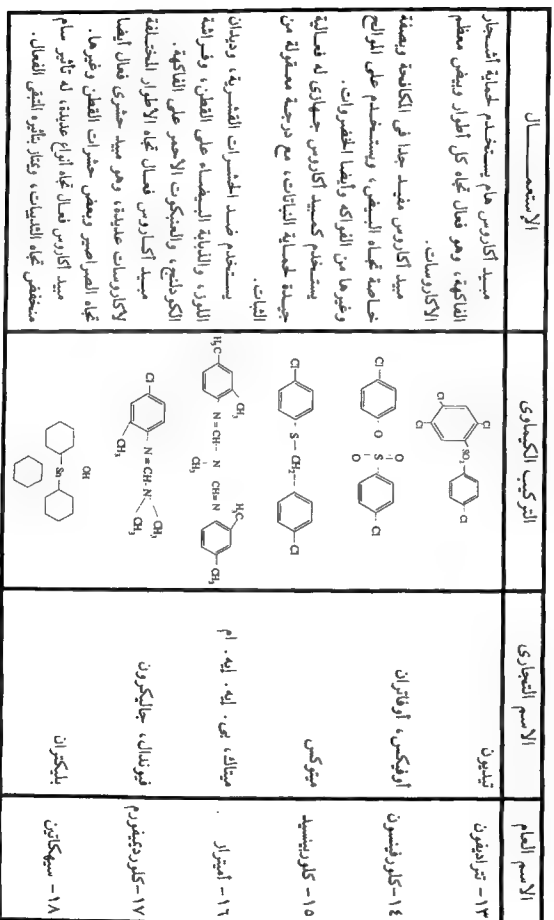 الاسم العام
الاسم التجارى
التركيب الكيماوى
الإستعمــــــال
١٣- تتراديفون
تيديون
Cl
Cl
Cl
SO₂
Cl
مبيد أكاروس هام يستخدم لحماية أشجار
الفاكهة، وهو فعال تجاه كل أطوار وبيض معظم
الأكاروسات.
١٤- كلورفينسون
أوفيكس، أوفاتران
Cl
O
O
S
O
Cl
مبيد أكاروس مفيد جدا فى الكافحة وبصفة
خاصة تجاه البيض، ويستخدم على الموالح
وغيرها من الفواكه وأيضا الخضروات.
١٥- كلوربنسيد
ميتوكس
Cl
S—CH₂
Cl
يستخدم كمبيد أكاروس جهازى له فعالية
جيدة لحماية النباتات، مع درجة معقولة من
الثبات.
١٦- أميتراز
ميتاك، بى. إيه. إيه. ام
H₃C
CH₃
N=CH-N
CH₃
CH=N
H₃C
CH₃
يستخدم ضد الحشرات القشرية، وديدان
اللوز، والذبابة البيضاء على القطن، وفراشة
الكودلنج، والعنكبوت الأحمر على الفاكهة.
١٧- كلورديميفورم
فيوندال، جاليكرون
Cl
CH₃
N=CH-N
CH₃
CH₃
مبيد أكاروس فعال تجاه الأطوار المختلفة
لأكاروسات عديدة، وهو مبيد حشرى فعال أيضا
تجاه الصراصير وبعض حشرات القطن وغيرها.
١٨- سيهكاتين
بليكتران
Sn
OH
مبيد أكاروس فعال تجاه أنواع عديدة، له تأثير سام
منخفض تجاه الثدييات، ويمتاز بتأثيره التبقى الفعال.